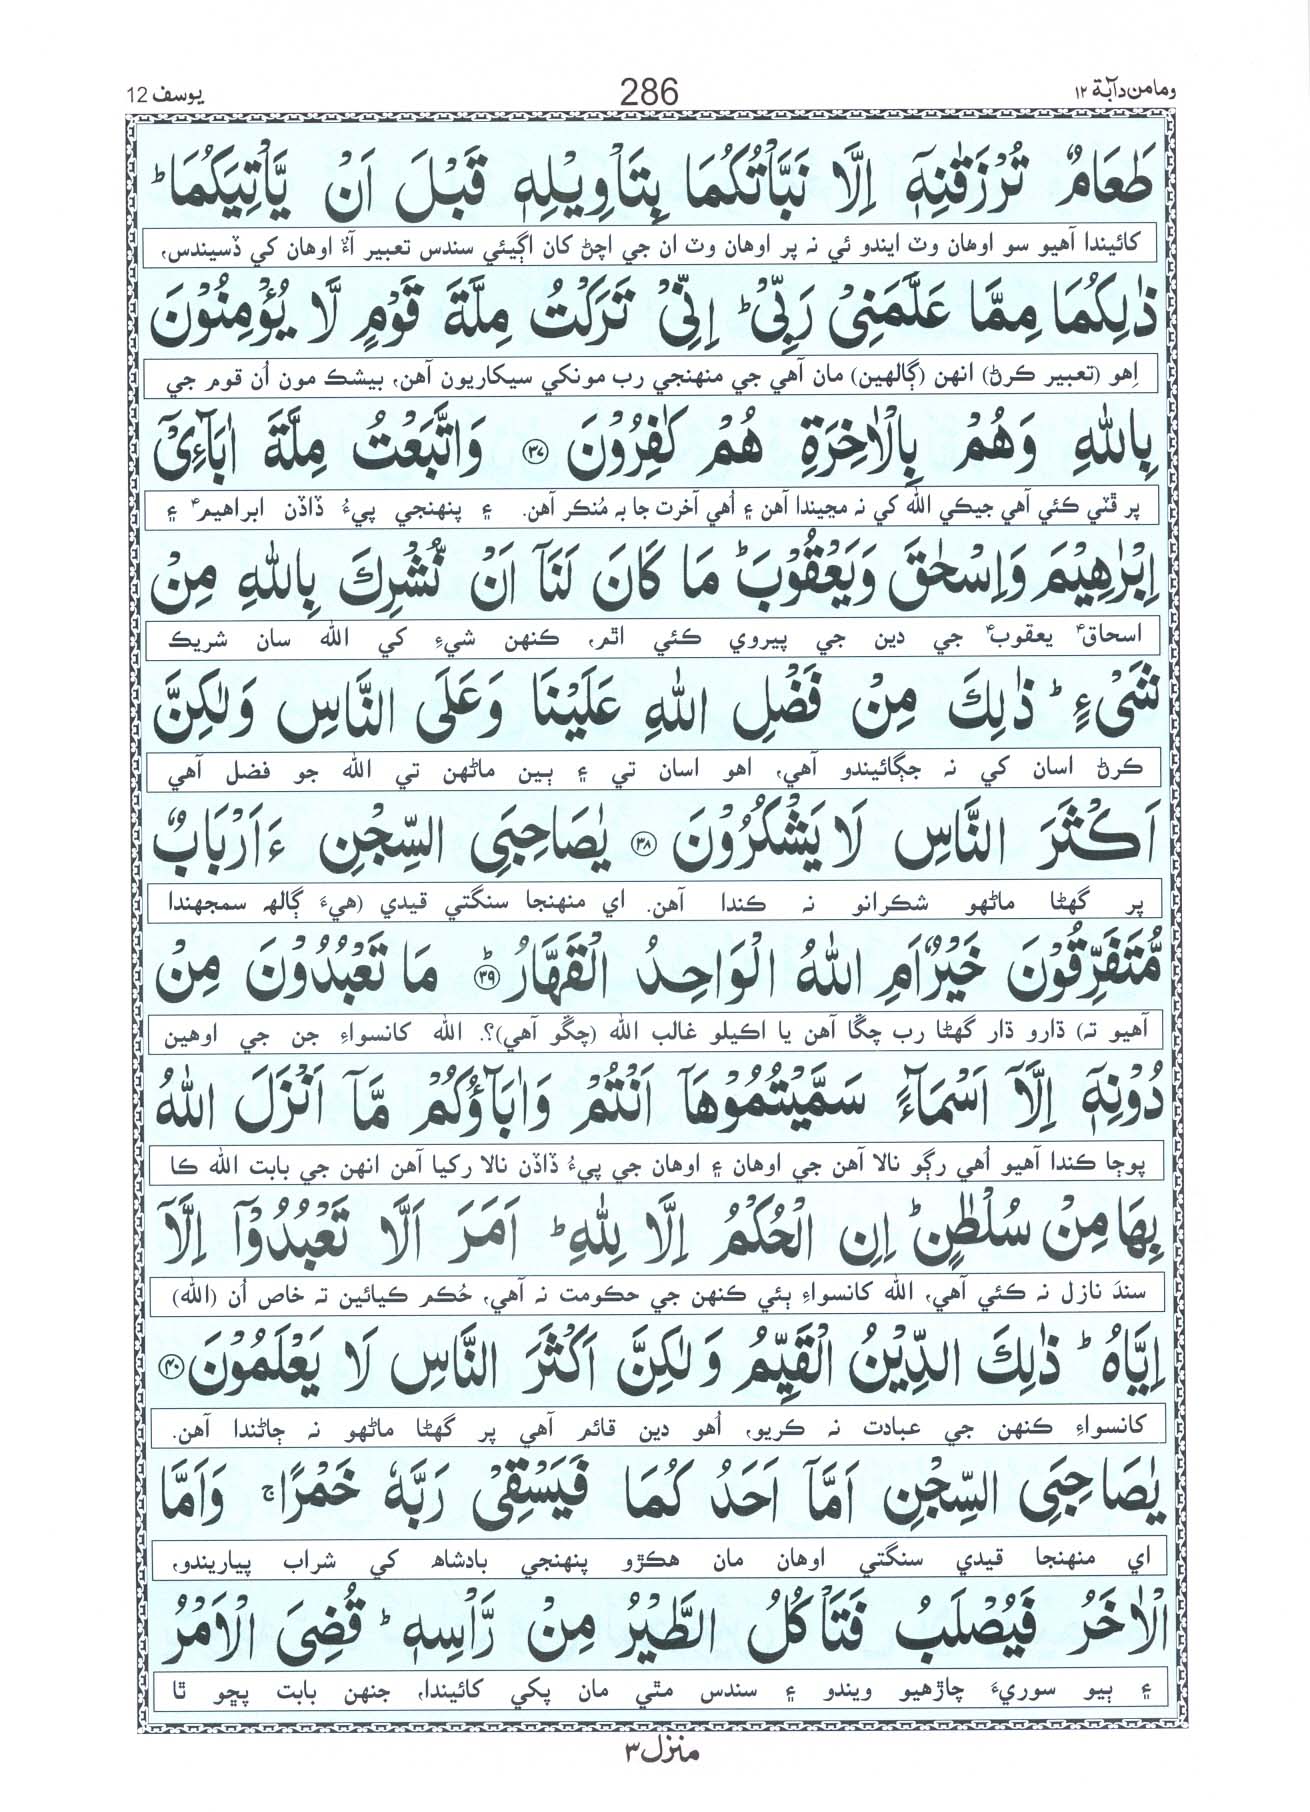 ومامن دآبة ١٢ 286 يوسف 12
طَعَامٌ تُرْزَقٰنِهٖۤ اِلَّا نَبَّاْتُكُمَا بِتَاْوِيْلِهٖ قَبْلَ اَنْ يَّاْتِيَكُمَا ؕ
کائيندا آهيو سو اوهان وٽ ايندو ئي نہ پر اوهان وٽ ان جي اچڻ کان اڳيئي سندس تعبير آءٌ اوهان کي ڏسيندس،
ذٰلِكُمَا مِمَّا عَلَّمَنِيْ رَبِّيْ ؕ اِنِّيْ تَرَكْتُ مِلَّةَ قَوْمٍ لَّا يُؤْمِنُوْنَ
اِهو (تعبير ڪرڻ) انهن (ڳالهين) مان آهي جي منهنجي رب مونکي سيکاريون آهن، بيشڪ مون اُن قوم جي
بِاللّٰهِ وَهُمْ بِالْاٰخِرَةِ هُمْ كٰفِرُوْنَ ﴿٣٧﴾ وَاتَّبَعْتُ مِلَّةَ اٰبَآءِيْۤ
پر ڦٽي ڪئي آهي جيڪي الله کي نہ مڃيندا آهن ۽ اُهي آخرت جا بہ مُنڪر آهن. ۽ پنهنجي پيءُ ڏاڏن ابراهيمؑ ۽
اِبْرٰهِيْمَ وَاِسْحٰقَ وَيَعْقُوْبَ ؕ مَا كَانَ لَنَاۤ اَنْ نُّشْرِكَ بِاللّٰهِ مِنْ
اسحاقؑ يعقوبؑ جي دين جي پيروي ڪئي اٿم، ڪنهن شيءِ کي الله سان شريڪ
شَيْءٍ ؕ ذٰلِكَ مِنْ فَضْلِ اللّٰهِ عَلَيْنَا وَعَلَى النَّاسِ وَلٰكِنَّ
ڪرڻ اسان کي نہ جڳائيندو آهي، اهو اسان تي ۽ ٻين ماڻهن تي الله جو فضل آهي
اَكْثَرَ النَّاسِ لَا يَشْكُرُوْنَ ﴿٣٨﴾ يٰصَاحِبَيِ السِّجْنِ ءَاَرْبَابٌ
پر گھڻا ماڻهو شڪرانو نہ ڪندا آهن. اي منهنجا سنگتي قيدي (هيءَ ڳالھ سمجھندا
مُّتَفَرِّقُوْنَ خَيْرٌ اَمِ اللّٰهُ الْوَاحِدُ الْقَهَّارُ ﴿٣٩﴾ ؕ مَا تَعْبُدُوْنَ مِنْ
آهيو تہ) ڌارو ڌار گھڻا رب چڱا آهن يا اڪيلو غالب الله (چڱو آهي)؟. الله کانسواءِ جن جي اوهين
دُوْنِهٖۤ اِلَّاۤ اَسْمَآءً سَمَّيْتُمُوْهَاۤ اَنْتُمْ وَاٰبَآؤُكُمْ مَّاۤ اَنْزَلَ اللّٰهُ
پوڄا ڪندا آهيو اُهي رڳو نالا آهن جي اوهان ۽ اوهان جي پيءُ ڏاڏن نالا رکيا آهن انهن جي بابت الله ڪا
بِهَا مِنْ سُلْطٰنٍ ؕ اِنِ الْحُكْمُ اِلَّا لِلّٰهِ ؕ اَمَرَ اَلَّا تَعْبُدُوْۤا اِلَّاۤ
سندَ نازل نہ ڪئي آهي، الله کانسواءِ ٻئي ڪنهن جي حڪومت نہ آهي، حُڪم ڪيائين تہ خاص اُن (الله)
اِيَّاهُ ؕ ذٰلِكَ الدِّيْنُ الْقَيِّمُ وَلٰكِنَّ اَكْثَرَ النَّاسِ لَا يَعْلَمُوْنَ ﴿٤٠﴾
کانسواءِ ڪنهن جي عبادت نہ ڪريو، اُهو دين قائم آهي پر گھڻا ماڻهو نہ ڄاڻندا آهن.
يٰصَاحِبَيِ السِّجْنِ اَمَّاۤ اَحَدُ كُمَا فَيَسْقِيْ رَبَّهٗ خَمْرًا ۚ وَاَمَّا
اي منهنجا قيدي سنگتي اوهان مان هڪڙو پنهنجي بادشاھ کي شراب پياريندو،
الْاٰخَرُ فَيُصْلَبُ فَتَاْكُلُ الطَّيْرُ مِنْ رَّاْسِهٖ ؕ قُضِيَ الْاَمْرُ
۽ ٻيو سوريءَ چاڙهيو ويندو ۽ سندس مٿي مان پکي کائيندا، جنهن بابت پڇو ٿا
منزل ٣